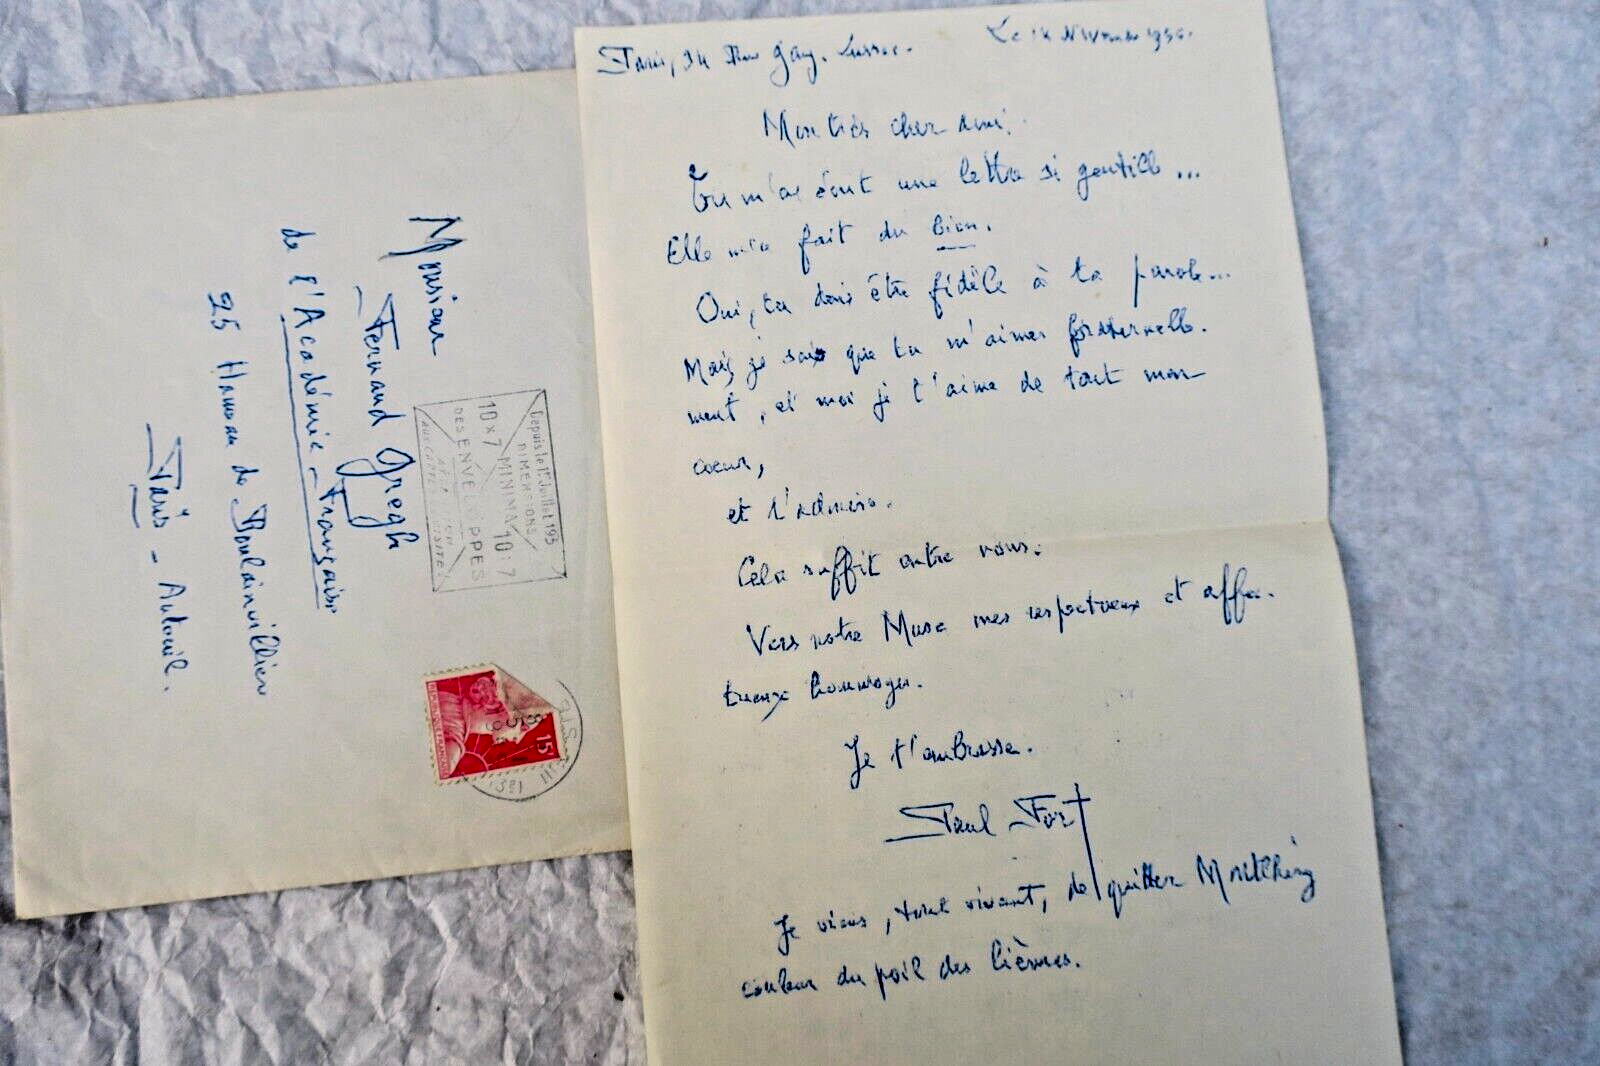 Monsieur
Fernand Gregh
de l'Académie-Française
25 Hameau de Boulainvillier
Paris - Auteuil.
Depuis le 1er Juillet 195
DIMENSIONS
MINIMA 10 : 7
10 x 7
DES ENVELOPPES
15
Paris, 34 Rue Gay-Lussac.
Le 14 Novembre 1956.
Mon très cher ami,
Tu m'as écrit une lettre si gentille ...
Elle m'a fait du bien.
Oui, tu dois être fidèle à ta parole...
Mais je sais que tu m'aimes fraternelle-
ment, et moi je t'aime de tout mon
cœur,
et t'admire.
Cela suffit entre nous.
Vers notre Muse mes respectueux et affec-
tueux hommages.
Je t'embrasse.
Paul Fort
Je viens, tout vivant, de quitter Montlhéry
couleur du poil des lièvres.